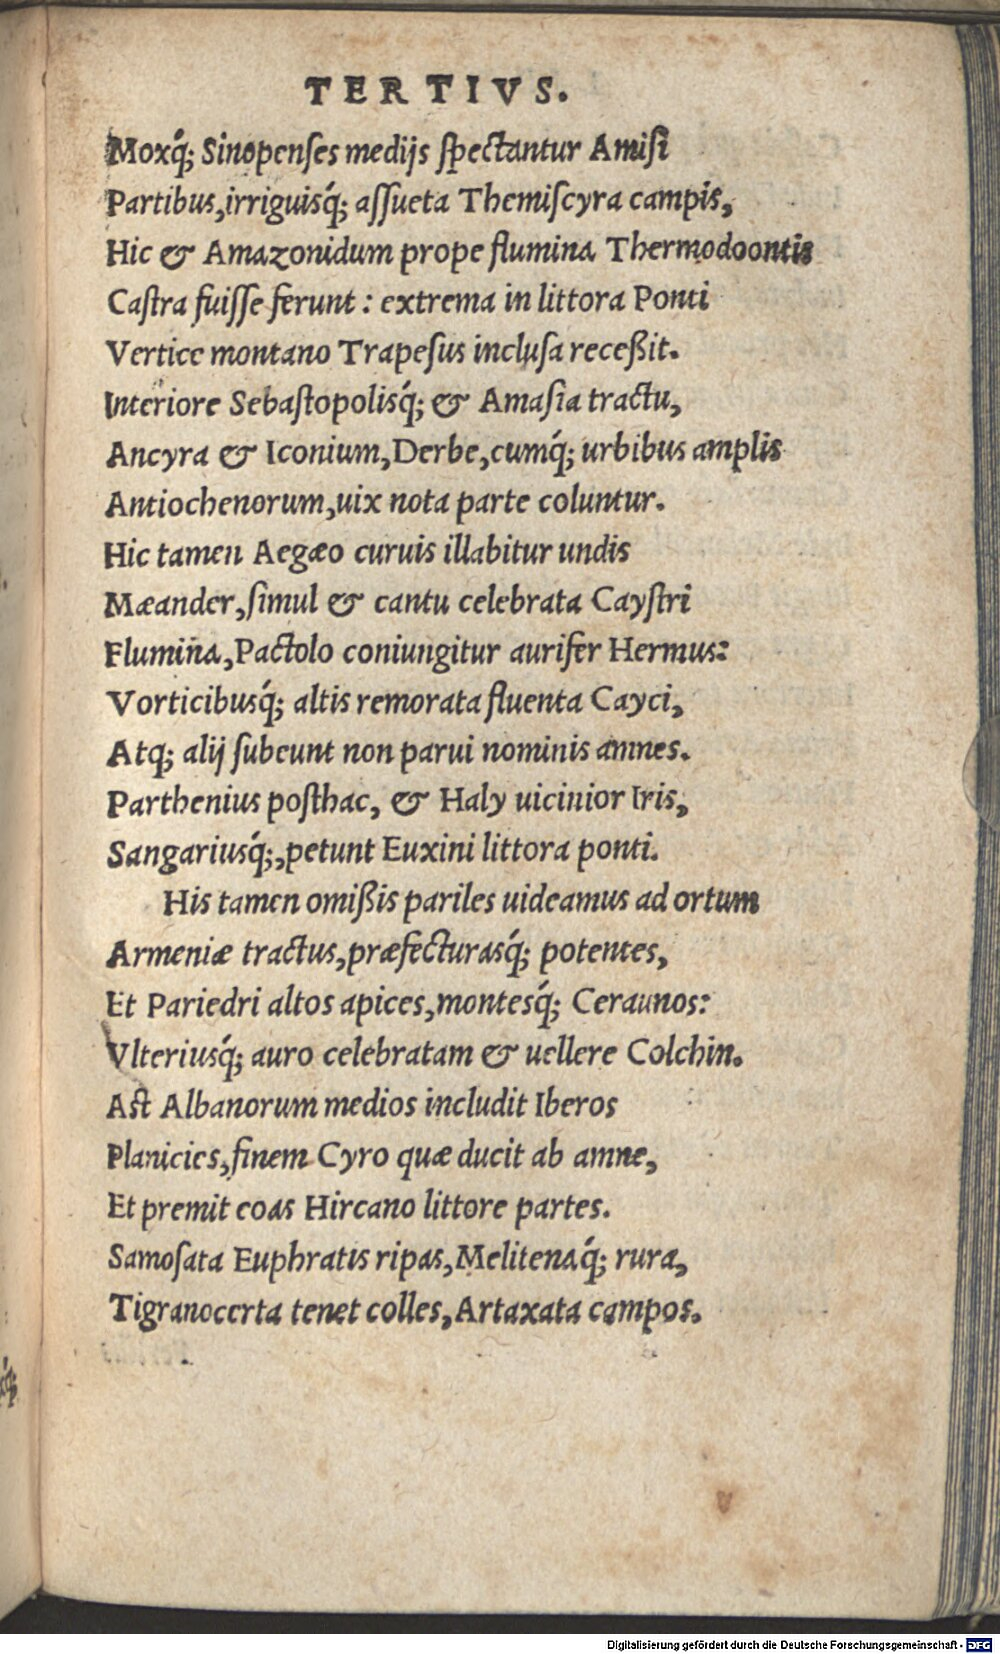 TERTIVS.
Moxq́; Sinopenſes medijs ſpectantur Amiſi
Partibus,irriguisq́; aſſueta Themiſcyra campis,
Hic & Amazonidum prope flumina Thermodoontis
Caſtra fuiſſe ferunt : extrema in littora Ponti
Vertice montano Trapeſus incluſa receßit.
Interiore Sebaſtopolisq́; & Amaſia tractu,
Ancyra & Iconium,Derbe,cumq́; urbibus amplis
Antiochenorum,uix nota parte coluntur.
Hic tamen Aegæo curuis illabitur undis
Mæander,ſimul & cantu celebrata Cayſtri
Flumina,Pactolo coniungitur aurifer Hermus:
Vorticibusq́; altis remorata fluenta Cayci,
Atq; alij ſubeunt non parui nominis amnes.
Parthenius poſthac, & Haly uicinior Iris,
Sangariusq́;,petunt Euxini littora ponti.
His tamen omißis pariles uideamus ad ortum
Armeniæ tractus,præfecturasq́; potentes,
Et Pariedri altos apices,montesq́; Ceraunos:
Vlteriusq́; auro celebratam & uellere Colchin.
Aſt Albanorum medios includit Iberos
Planicies,finem Cyro quæ ducit ab amne,
Et premit eoas Hircano littore partes.
Samoſata Euphratis ripas,Melitenaq́; rura,
Tigranocerta tenet colles,Artaxata campos.
Digitalisierung gefördert durch die Deutsche Forschungsgemeinschaft - DFG